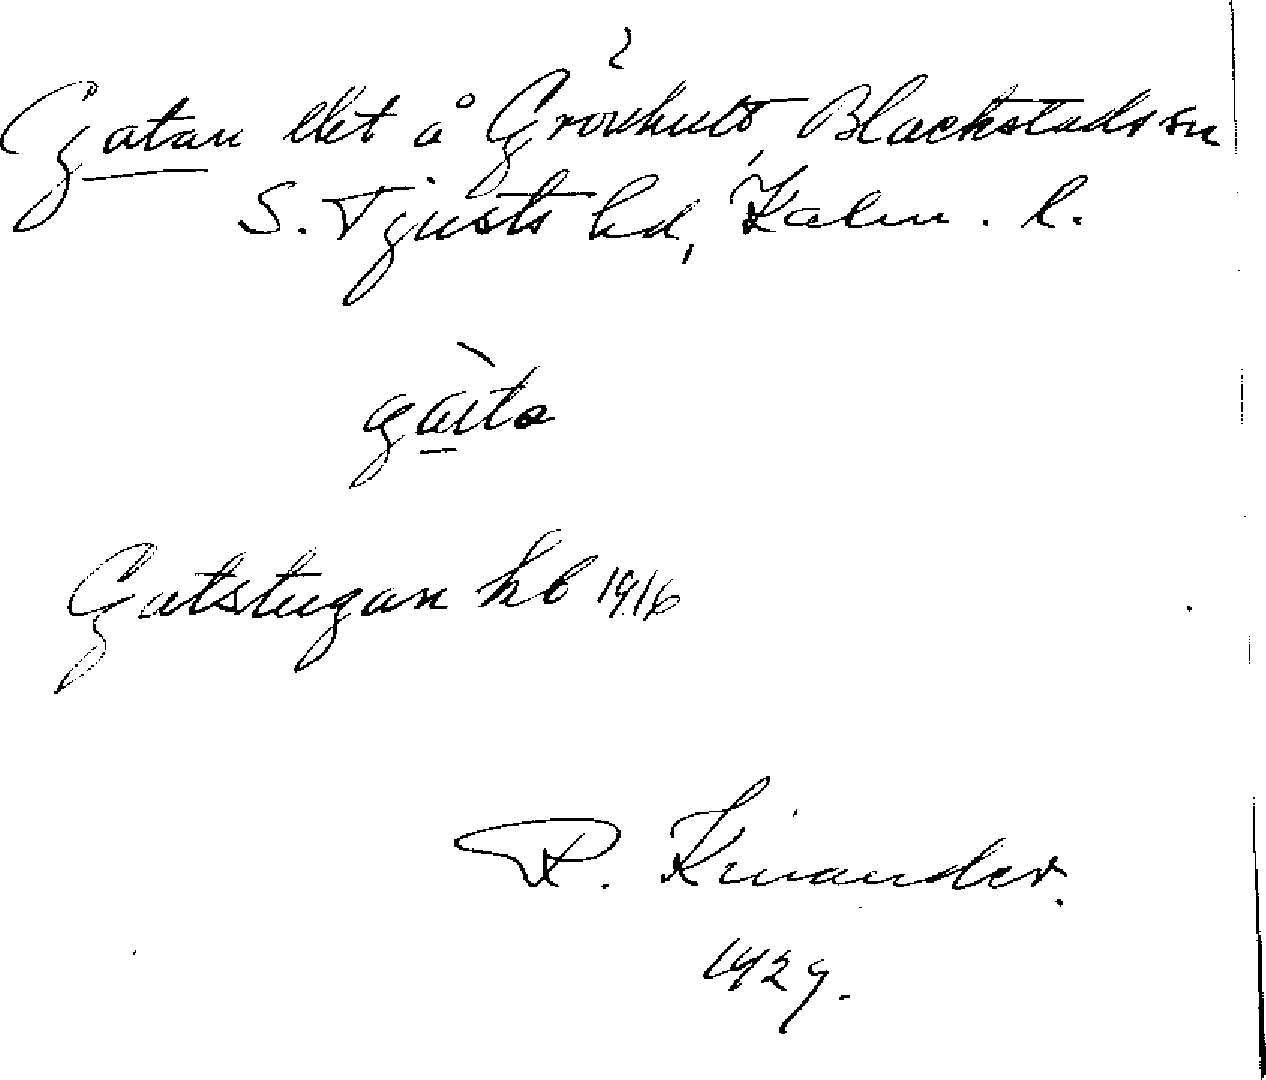 Gatan lht å Grovhult, Blackstads sn
S. Tjusts hd, Kalm. l.
Gatstugan hb 1916
R. Kinander.
1929.